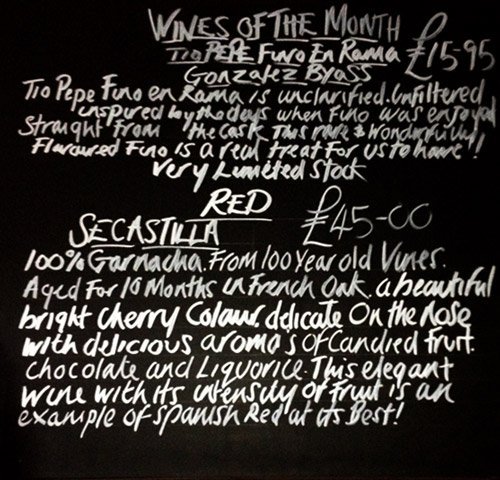 WINES OF THE MONTH
TIO PEPE Fino En Rama £15-95
Gonzalez Byass
Tio Pepe Fino en Rama is unclarified. Unfiltered
inspired by the days when Fino was enjoyed
Straight from the cask. This rare & Wonderfully
Flavoured Fino Is a real treat for us to have!!
Very Limited Stock
RED
SECASTILLA £45-00
100% Garnacha. From 100 Year old Vines.
Aged For 10 Months in French Oak. a beautiful
bright cherry Colour. delicate On the Nose
with delicious aromas of Candied fruit.
Chocolate and Liquorice. This elegant
wine with its intensity of Fruit is an
example of Spanish Red at its Best!